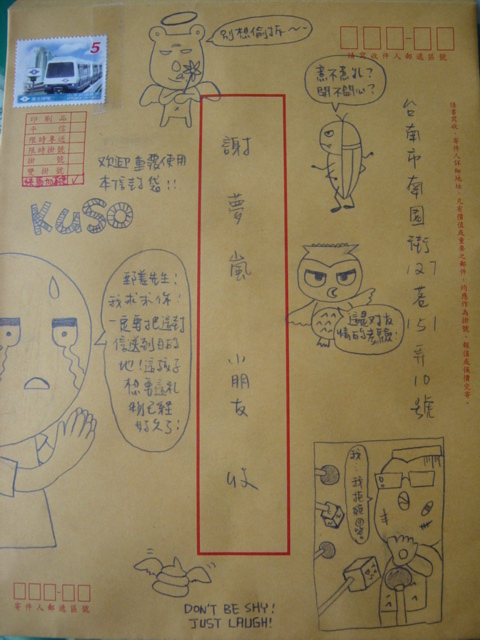 5
別想偷拆~~
請寫收件人郵遞區號
意不意外?
開不開心?
印刷品
平信
限時專送
限時掛號
掛號
雙掛號
歡迎重複使用
本信封袋!!
KUSO
謝夢嵐 小朋友 收
台南市南園街127巷151弄10號
郵差先生!
我求求你!
一定要把這封
信送到目的
地!這孩子
想要這禮
物已經
好久了!
這是对友
情的考驗.
我…我拒絕回答.
寄件人郵遞區號
DON'T BE SHY!
JUST LAUGH!